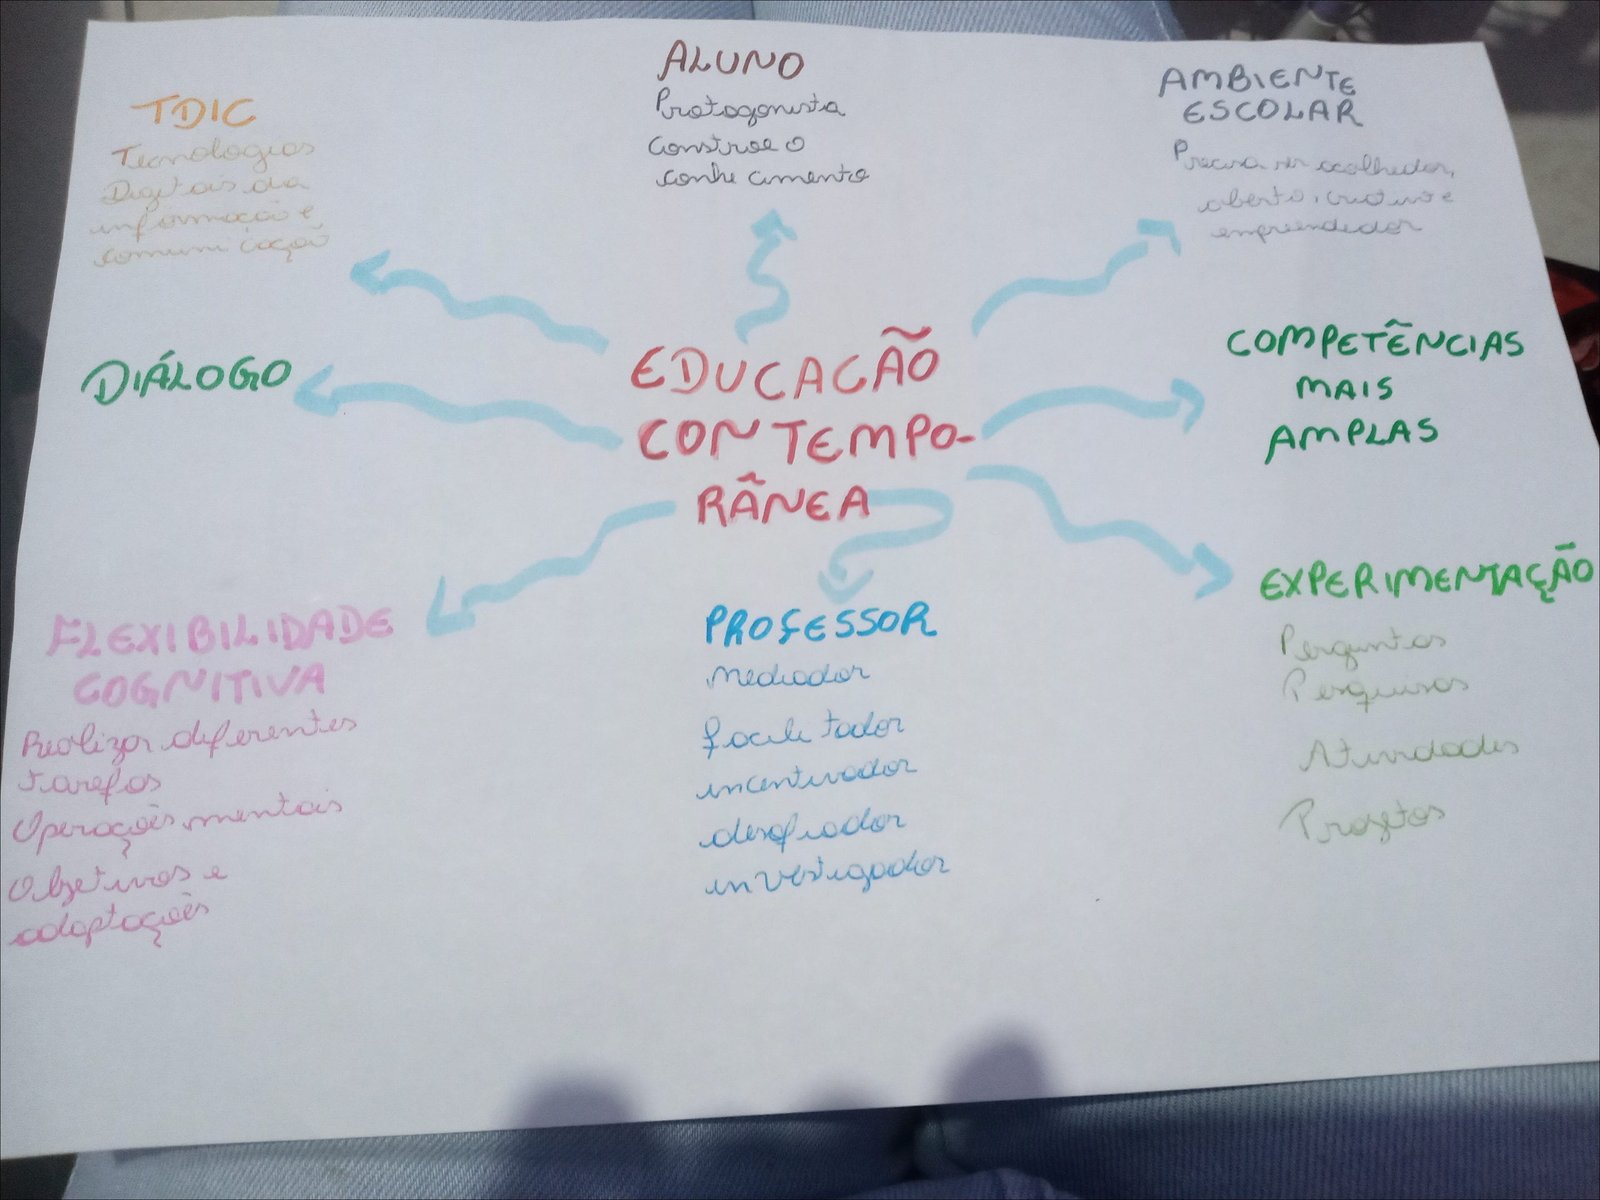 TDIC
Tecnologias
Digitais da
informação e
comunicação
ALUNO
Protagonista
Constroe o
conhecimento
AMBIENTE
ESCOLAR
Precisa ser acolhedor,
aberto, criativo e
empreendedor
DIÁLOGO
EDUCAÇÃO
CONTEMPO-
RÂNEA
COMPETÊNCIAS
MAIS
AMPLAS
FLEXIBILIDADE
COGNITIVA
Realizar diferentes
tarefas
Operações mentais
Objetivos e
adaptações
PROFESSOR
mediador
facilitador
incentivador
desafiador
investigador
EXPERIMENTAÇÃO
Perguntas
Pesquisas
Atividades
Projetos